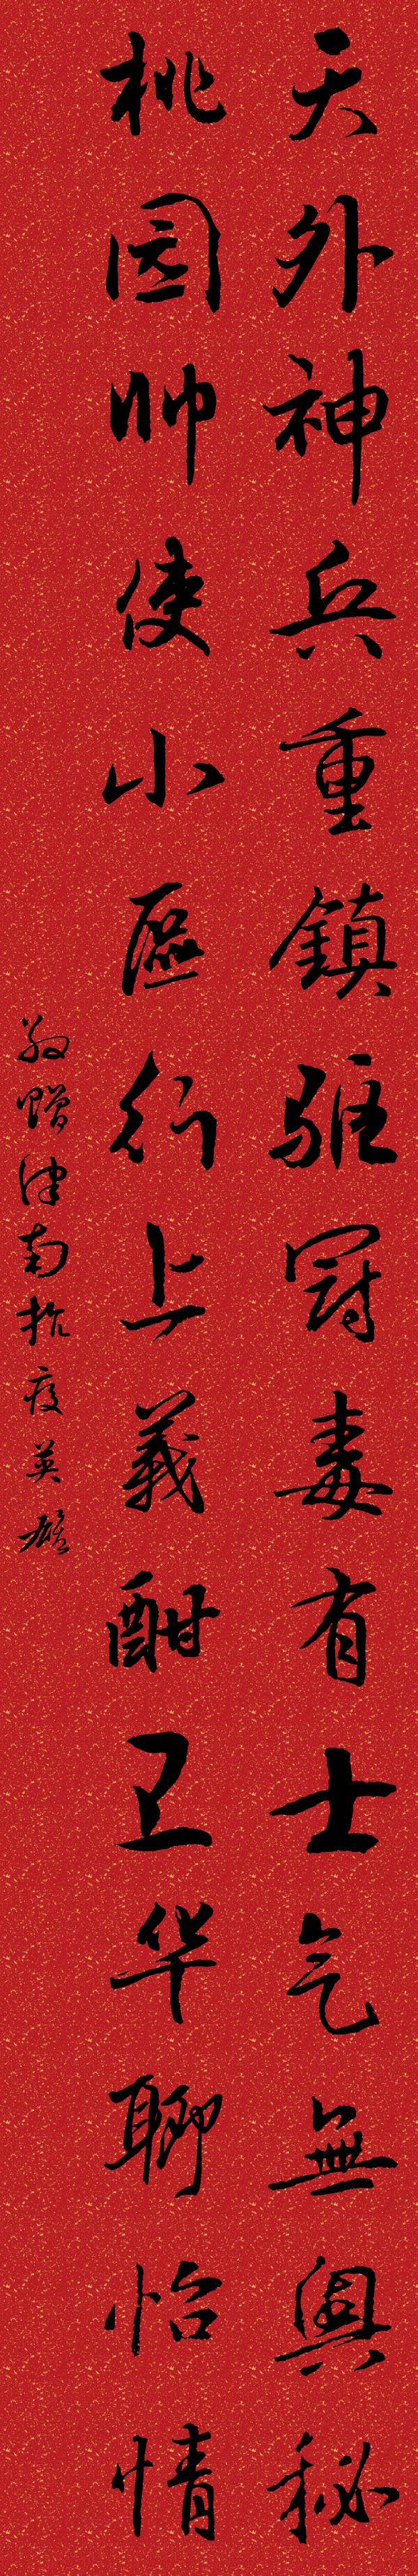 天外神兵重鎮驱冠毒有士气無奥秘
桃园帅使小區行上義酣卫华聊怡情
敬赠津南抗疫英雄